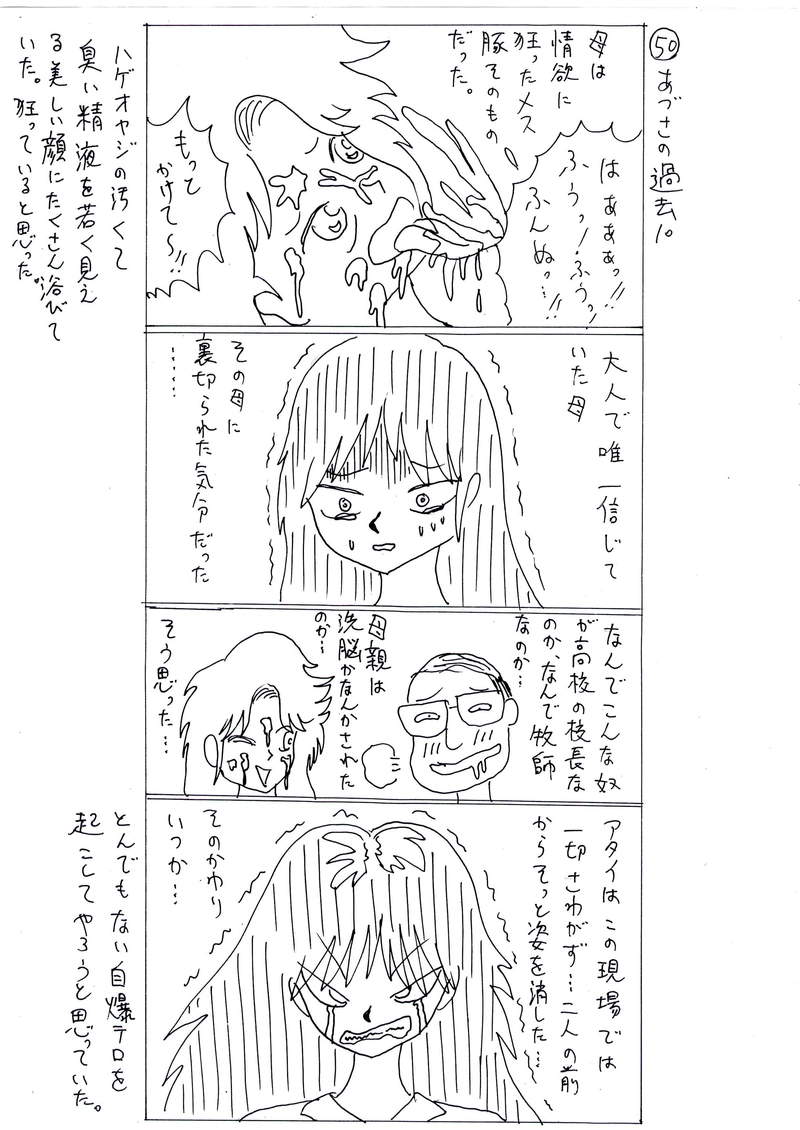 ㊿あづさの過去⑩
はあぁぁっ!!
ふぅっ!ふぅっ!
ふんぬっ…!!
母は
情欲に
狂ったメス
豚そのもの
だった。
もっと
かけて～!!
ハゲオヤジの汚くて
臭い精液を若く見え
る美しい顔にたくさん浴びて
いた。狂っていると思った。
大人で唯一信じて
いた母
その母に
裏切られた気分だった
……
なんでこんな奴
が高校の校長な
のか、なんで牧師
なのか…
母親は
洗脳かなんかされた
のか…
そう思った…
アタイはこの現場では
一切さわがず…二人の前
からそっと姿を消した…
そのかわり
いつか…
とんでもない自爆テロを
起こしてやろうと思っていた。